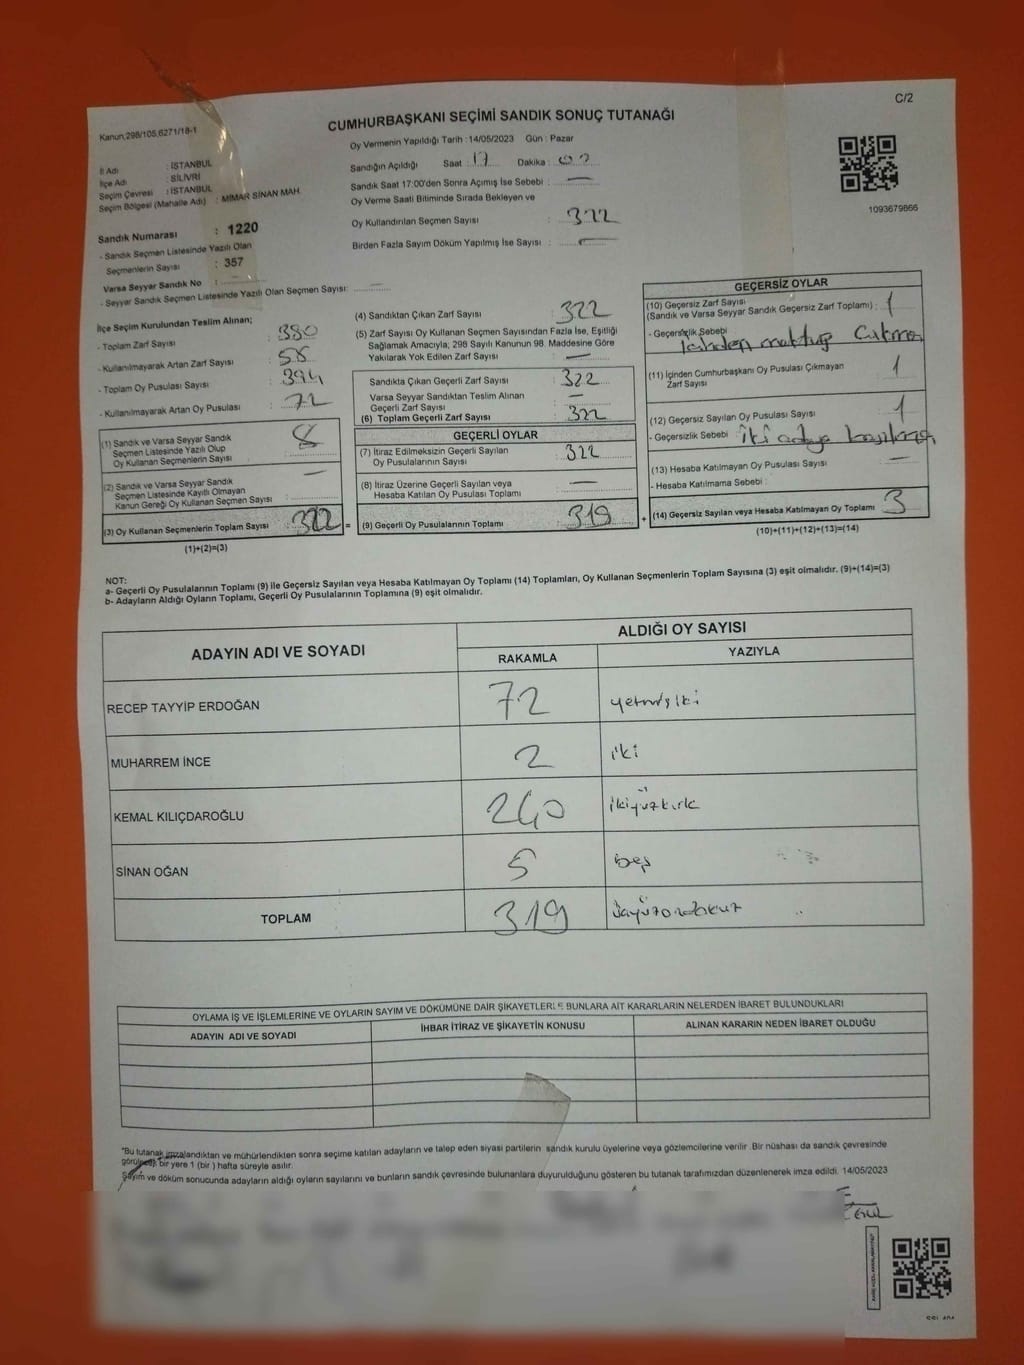 C/2
Kanun,298/105,6271/18-1
CUMHURBAŞKANI SEÇİMİ SANDIK SONUÇ TUTANAĞI
Oy Vermenin Yapıldığı Tarih :14/05/2023 Gün : Pazar
İl Adı : İSTANBUL
İlçe Adı : SİLİVRİ
Seçim Çevresi : İSTANBUL
Seçim Bölgesi (Mahalle Adı) : MİMAR SİNAN MAH.
Sandık Numarası : 1220
- Sandık Seçmen Listesinde Yazılı Olan
Seçmenlerin Sayısı : 357
Varsa Seyyar Sandık No :
- Seyyar Sandık Seçmen Listesinde Yazılı Olan Seçmen Sayısı:
Sandığın Açıldığı Saat : 17 Dakika :
Sandık Saat 17:00'den Sonra Açımış İse Sebebi : —
Oy Verme Saati Bitiminde Sırada Bekleyen ve
Oy Kullandırılan Seçmen Sayısı : 322
Birden Fazla Sayım Döküm Yapılmış İse Sayısı : —
1093679866
İlçe Seçim Kurulundan Teslim Alınan;
- Toplam Zarf Sayısı : 380
- Kullanılmayarak Artan Zarf Sayısı : 58
- Toplam Oy Pusulası Sayısı : 394
- Kullanılmayarak Artan Oy Pusulası : 72
(1) Sandık ve Varsa Seyyar Sandık
Seçmen Listesinde Yazılı Olup
Oy Kullanan Seçmenlerin Sayısı : 8
(2) Sandık ve Varsa Seyyar Sandık
Seçmen Listesinde Kayıtlı Olmayan
Kanun Gereği Oy Kullanan Seçmen Sayısı : —
(3) Oy Kullanan Seçmenlerin Toplam Sayısı : 322 =
(1)+(2)=(3)
(4) Sandıktan Çıkan Zarf Sayısı : 322
(5) Zarf Sayısı Oy Kullanan Seçmen Sayısından Fazla İse, Eşitliği
Sağlamak Amacıyla; 298 Sayılı Kanunun 98. Maddesine Göre
Yakılarak Yok Edilen Zarf Sayısı : —
Sandıkta Çıkan Geçerli Zarf Sayısı : 322
Varsa Seyyar Sandıktan Teslim Alınan
Geçerli Zarf Sayısı : —
(6) Toplam Geçerli Zarf Sayısı : 322
GEÇERLİ OYLAR
(7) İtiraz Edilmeksizin Geçerli Sayılan
Oy Pusulalarının Sayısı : 322
(8) İtiraz Üzerine Geçerli Sayılan veya
Hesaba Katılan Oy Pusulası Toplamı : —
(9) Geçerli Oy Pusulalarının Toplamı : 319 +
GEÇERSİZ OYLAR
(10) Geçersiz Zarf Sayısı
(Sandık ve Varsa Seyyar Sandık Geçersiz Zarf Toplamı) : 1
- Geçersizlik Sebebi
İçinden mektup Çıkma
(11) İçinden Cumhurbaşkanı Oy Pusulası Çıkmayan
Zarf Sayısı 1
(12) Geçersiz Sayılan Oy Pusulası Sayısı : 1
- Geçersizlik Sebebi : iki adaya
(13) Hesaba Katılmayan Oy Pusulası Sayısı : —
- Hesaba Katılmama Sebebi :
(14) Geçersiz Sayılan veya Hesaba Katılmayan Oy Toplamı : 3
(10)+(11)+(12)+(13)=(14)
NOT:
a- Geçerli Oy Pusulalarının Toplamı (9) ile Geçersiz Sayılan veya Hesaba Katılmayan Oy Toplamı (14) Toplamları, Oy Kullanan Seçmenlerin Toplam Sayısına (3) eşit olmalıdır. (9)+(14)=(3)
b- Adayların Aldığı Oyların Toplamı, Geçerli Oy Pusulalarının Toplamına (9) eşit olmalıdır.
ADAYIN ADI VE SOYADI ALDIĞI OY SAYISI
RAKAMLA YAZIYLA
RECEP TAYYİP ERDOĞAN 72 yetmişiki
MUHARREM İNCE 2 iki
KEMAL KILIÇDAROĞLU 240 ikiyüzkırk
SİNAN OĞAN 5 beş
TOPLAM 319 üçyüzondokuz
OYLAMA İŞ VE İŞLEMLERİNE VE OYLARIN SAYIM VE DÖKÜMÜNE DAİR ŞİKAYETLERLE BUNLARA AİT KARARLARIN NELERDEN İBARET BULUNDUKLARI
ADAYIN ADI VE SOYADI İHBAR İTİRAZ VE ŞİKAYETİN KONUSU ALINAN KARARIN NEDEN İBARET OLDUĞU
*Bu tutanak imzalandıktan ve mühürlendikten sonra seçime katılan adayların ve talep eden siyasi partilerin sandık kurulu üyelerine veya gözlemcilerine verilir .Bir nüshası da sandık çevresinde
görülecek bir yere 1 (bir ) hafta süreyle asılır.
Sayım ve döküm sonucunda adayların aldığı oyların sayılarını ve bunların sandık çevresinde bulunanlara duyurulduğunu gösteren bu tutanak tarafımızdan düzenlenerek imza edildi. 14/05/2023